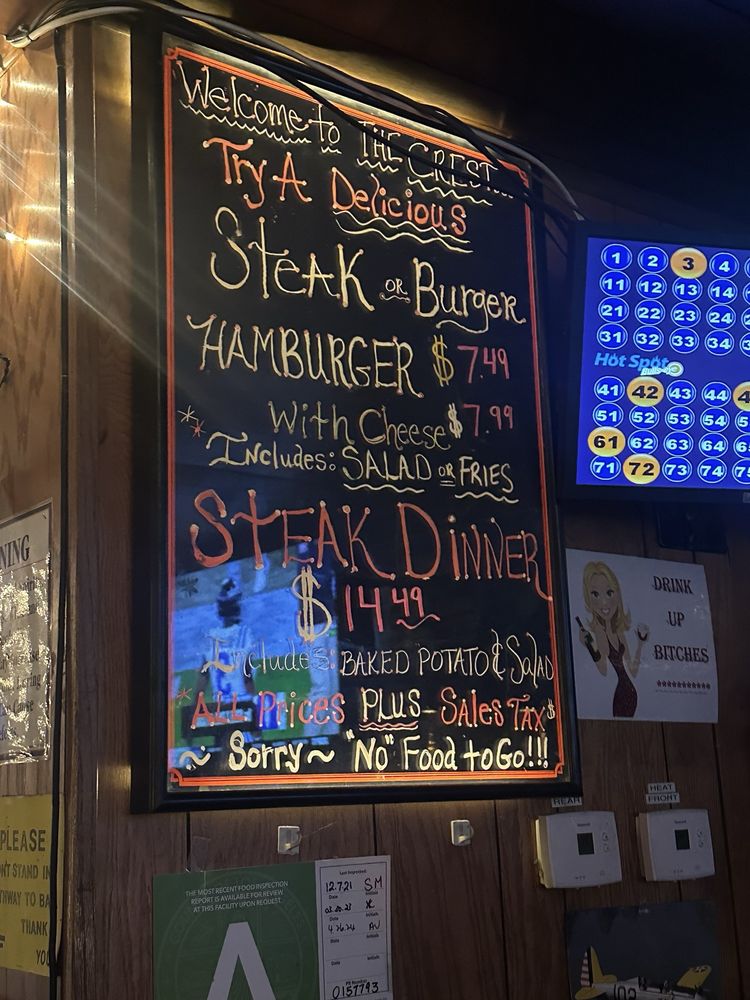 Welcome to THE CREST...
Try A Delicious
STEAK OR Burger
HAMBURGER $ 7.49
With Cheese $ 7.99
** Includes: SALAD OR FRIES
STEAK DINNER
$ 14 49
Includes: BAKED POTATO & SALAD
*ALL Prices PLUS - Sales TAX$
~ Sorry ~ "No" Food to Go!!!
1 2 3 4
11 12 13 14
21 22 23 24
31 32 33 34
Hot Spot
Bulls-eye
41 42 43 44
51 52 53 54
61 62 63 64
71 72 73 74
DRINK
UP
BITCHES
REAR
HEAT
FRONT
PLEASE
THANK
THE MOST RECENT FOOD INSPECTION
REPORT IS AVAILABLE FOR REVIEW
AT THIS FACILITY UPON REQUEST.
A
Last Inspected:
12.7.21 SM
Date Initials
Date Initials
4.26.24 AV
Date Initials
Date Initials
PR Number
0157793